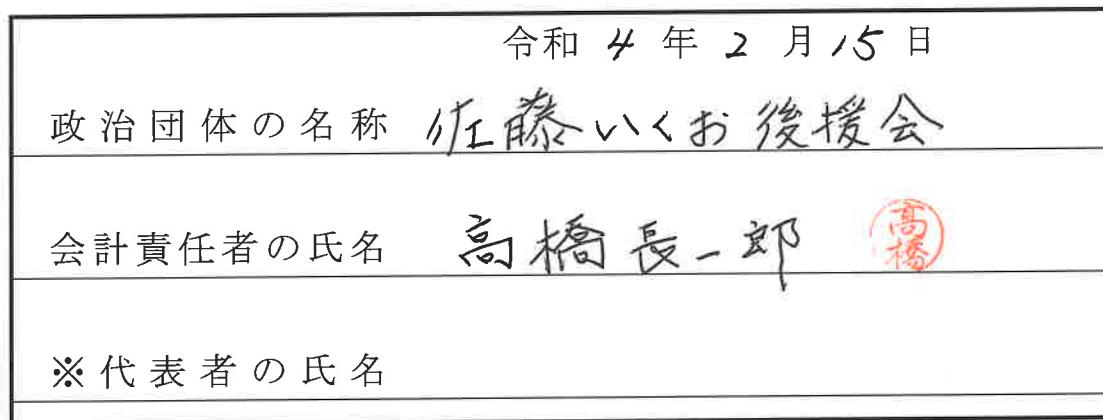 令和4年2月15日
政治団体の名称 佐藤いくお後援会
会計責任者の氏名 高橋長一郎 髙橋
※代表者の氏名